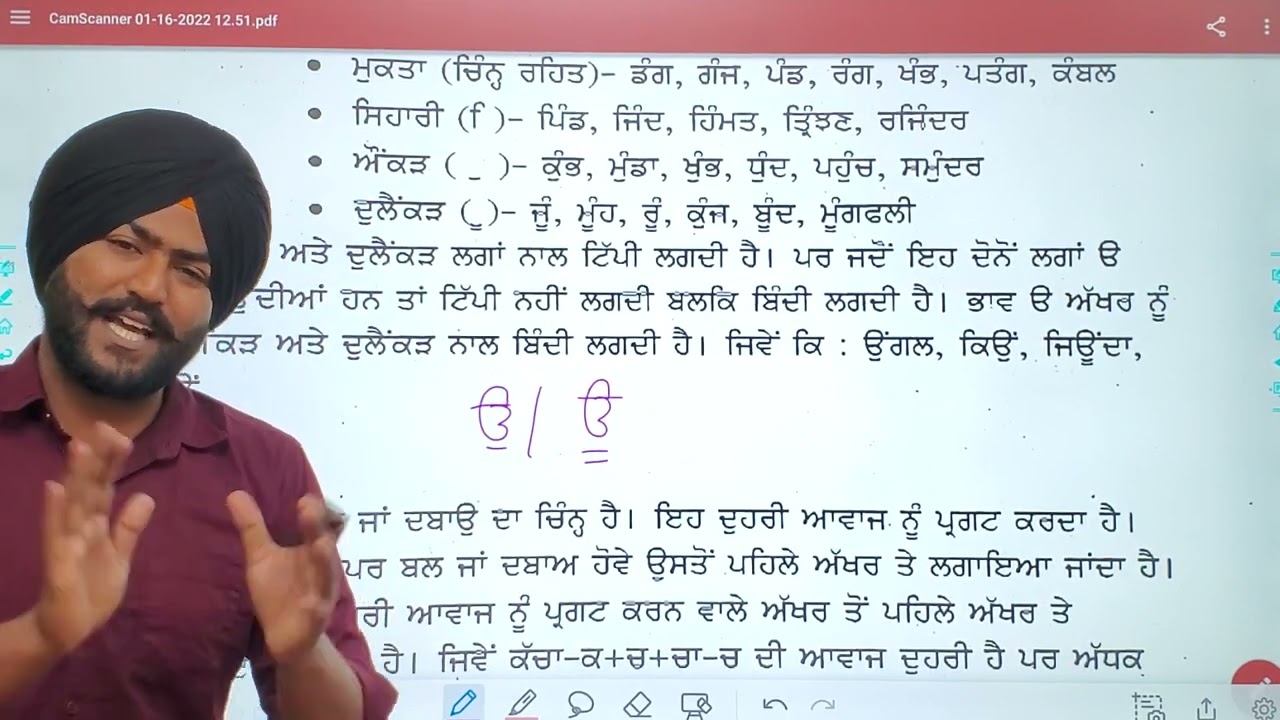 CamScanner 01-16-2022 12.51.pdf
• ਮੁਕਤਾ (ਚਿੰਨ੍ਹ ਰਹਿਤ)- ਡੰਗ, ਗੰਜ, ਪੰਡ, ਰੰਗ, ਖੰਭ, ਪਤੰਗ, ਕੰਬਲ
• ਸਿਹਾਰੀ (ਿ)- ਪਿੰਡ, ਜਿੰਦ, ਹਿੰਮਤ, ਤ੍ਰਿੰਝਣ, ਰਜਿੰਦਰ
• ਔਂਕੜ ( ੁ )- ਕੁੰਭ, ਮੁੰਡਾ, ਖੁੰਭ, ਧੁੰਦ, ਪਹੁੰਚ, ਸਮੁੰਦਰ
• ਦੁਲੈਂਕੜ ( ੂ )- ਜੂੰ, ਮੂੰਹ, ਰੂੰ, ਕੂੰਜ, ਬੂੰਦ, ਮੂੰਗਫਲੀ
ਅਤੇ ਦੁਲੈਂਕੜ ਲਗਾਂ ਨਾਲ ਟਿੱਪੀ ਲਗਦੀ ਹੈ। ਪਰ ਜਦੋਂ ਇਹ ਦੋਨੋਂ ਲਗਾਂ ੳ
ਦੀਆਂ ਹਨ ਤਾਂ ਟਿੱਪੀ ਨਹੀਂ ਲਗਦੀ ਬਲਕਿ ਬਿੰਦੀ ਲਗਦੀ ਹੈ। ਭਾਵ ੳ ਅੱਖਰ ਨੂੰ
ਕੜ ਅਤੇ ਦੁਲੈਂਕੜ ਨਾਲ ਬਿੰਦੀ ਲਗਦੀ ਹੈ। ਜਿਵੇਂ ਕਿ : ਉਂਗਲ, ਕਿਉਂ, ਜਿਊਂਦਾ,
ਉ / ਊ
ਜਾਂ ਦਬਾਉ ਦਾ ਚਿੰਨ੍ਹ ਹੈ। ਇਹ ਦੁਹਰੀ ਆਵਾਜ ਨੂੰ ਪ੍ਰਗਟ ਕਰਦਾ ਹੈ।
ਪਰ ਬਲ ਜਾਂ ਦਬਾਅ ਹੋਵੇ ਉਸਤੋਂ ਪਹਿਲੇ ਅੱਖਰ ਤੇ ਲਗਾਇਆ ਜਾਂਦਾ ਹੈ।
ਰੀ ਆਵਾਜ ਨੂੰ ਪ੍ਰਗਟ ਕਰਨ ਵਾਲੇ ਅੱਖਰ ਤੋਂ ਪਹਿਲੇ ਅੱਖਰ ਤੇ
ਹੈ। ਜਿਵੇਂ ਕੱਚਾ-ਕ+ਚ+ਚਾ-ਚ ਦੀ ਆਵਾਜ ਦੁਹਰੀ ਹੈ ਪਰ ਅੱਧਕ